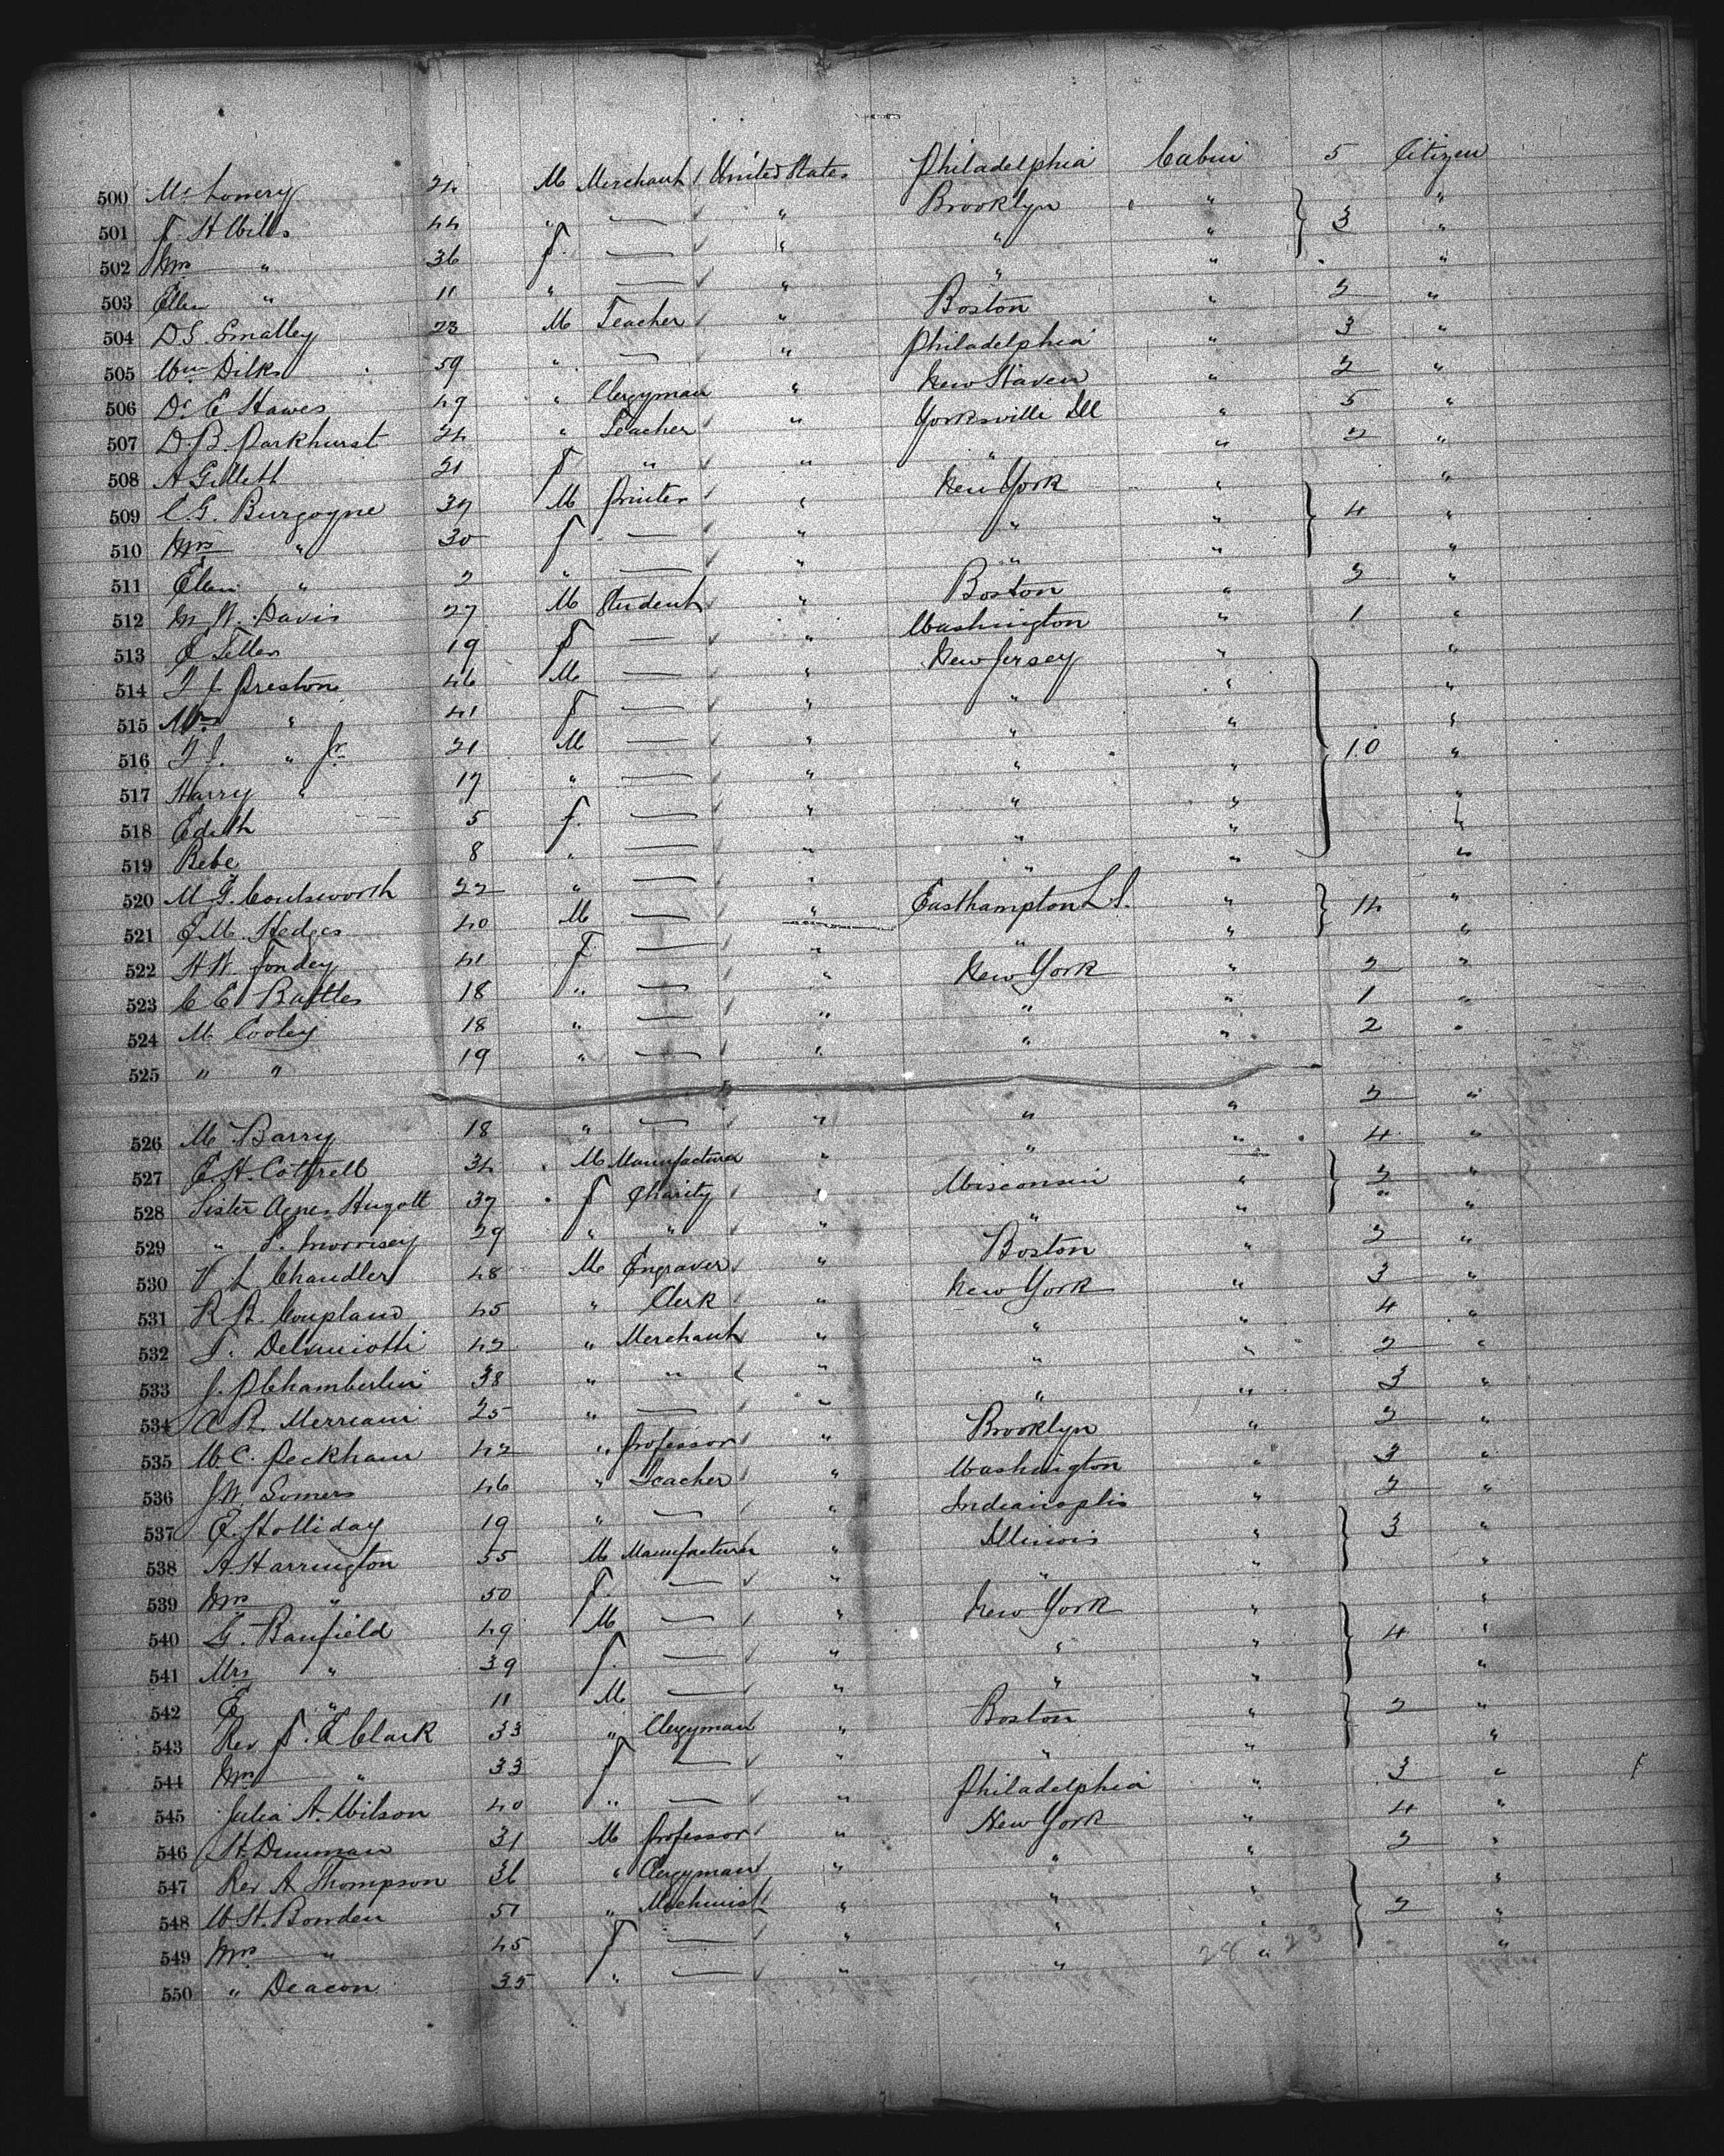 500 Mc Lowery 24 M Merchant United States Philadelphia Cabin 5 Citizen
501 44 " — " Brooklyn " 3 "
502 Mrs " 36 F. — " " " "
503 Ellen " 11 " — " " " "
504 D. S. Smalley 23 M Teacher " Boston " 2 "
505 Wm Dilks 59 " — " Philadelphia " 3 "
506 Dr E Hawes 49 " Clergyman " New Haven " 2 "
507 D. B. Parkhurst 24 " Teacher " Yorksville Ill " 5 "
508 A Gillett 21 F " " " " 2 "
509 C. G. Burgoyne 37 M Printer " New York " 4 "
510 Mrs " 30 F — " " " "
511 Ellen " 2 " — " " " "
512 M W. Davis 27 M Student " Boston " 2 "
513 19 F — " Washington " 1 "
514 T J Preston 46 M — " New Jersey " "
515 Mrs " 41 F — " " " "
516 T J. " Jr 21 M — " " " 10 "
517 Harry " 17 " — " " " "
518 Edith 5 F. — " " " "
519 Bebe 8 " — " " " "
520 M F. Coulsworth 22 " — " " " "
521 E. M. Hedges 40 M — " Easthampton L I. " 14 "
522 H W. Fondey 41 F — " " " "
523 C E Battles 18 " — " New York " 2 "
524 M Cooley 18 " — " " " 1 "
525 " " 19 " — " " " 2 "
526 M Barry 18 " — " " " 2 "
527 E. H. Cottrell 34 M Manufacturer " " " 4 "
528 Sister Agnes Hugott 37 F Charity " Wisconsin " 2 "
529 " P. Morrisey 29 " " " " " " "
530 V L Chandler 48 M Engraver " Boston " 2 "
531 R R. Coupland 45 " Clerk " New York " 3 "
532 42 " Merchant " " " 4 "
533 J. P. Chamberlin 38 " " " " " 2 "
534 A R. Merriam 25 " — " " " 3 "
535 W C. Peckham 42 " Professor " Brooklyn " 2 "
536 J W. Somers 46 " Teacher " Washington " 3 "
537 E. Holliday 19 " — " Indianoplis " 2 "
538 A. Harrington 55 M Manufacturer " Illinois " 3 "
539 Mrs " 50 F. — " " " "
540 G. Banfield 49 M — " New York " "
541 Mrs " 39 F. — " " " 4 "
542 E " 11 M — " " " "
543 Rev F. E Clark 33 " Clergyman " Boston " 2 "
544 Mrs " 33 F — " " " "
545 Julia A. Wilson 40 " — " Philadelphia " 3 "
546 H. Drumman 31 M Professor " New York " 4 "
547 Rev A Thompson 36 " Clergyman " " " 2 "
548 W. H. Bowden 51 " Machinist " " " "
549 Mrs " 45 F — " " " 2 "
550 " Deacon 35 " — " " " "
28 23